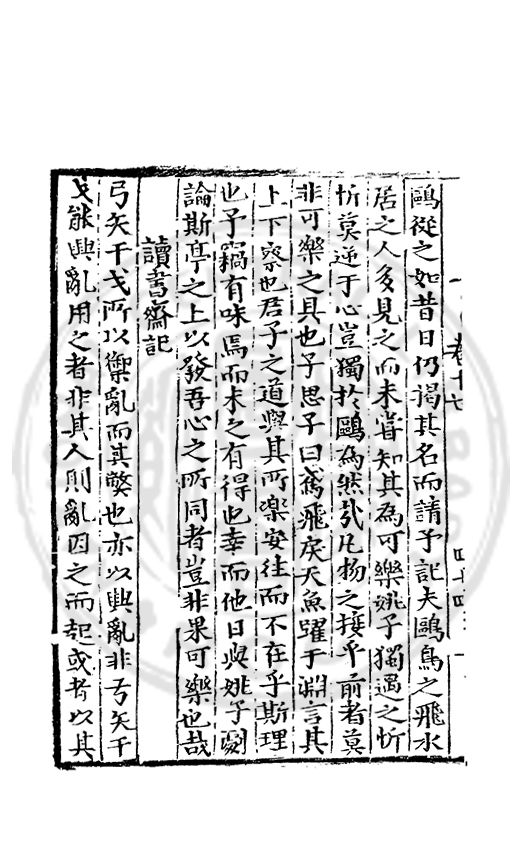 鷗從之如昔日仍揭其名而請予記夫鷗鳥之飛水
居之人多見之而未甞知其為可樂姚子獨遇之忻
忻莫逆于心豈獨於鷗為然㢤凡物之接乎前者莫
非可樂之具也子思子曰鳶飛戾天魚躍于淵言其
上下察也君子之道與其所樂安往而不在乎斯理
也予竊有味焉而未之有得也幸而他日與姚子劇
論斯亭之上以發吾心之所同者豈非果可樂也哉
讀書齋記
弓矢干戈所以禦亂而其弊也亦以興亂非弓矢干
戈能興亂用之者非其人則亂因之而起或者以其
卷十七
四十四